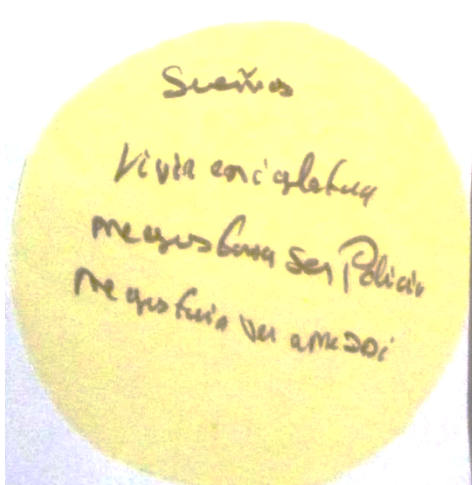 Sueños
Vivir en inglatura
me gustaria ser Policia
me gustaria ver a messi